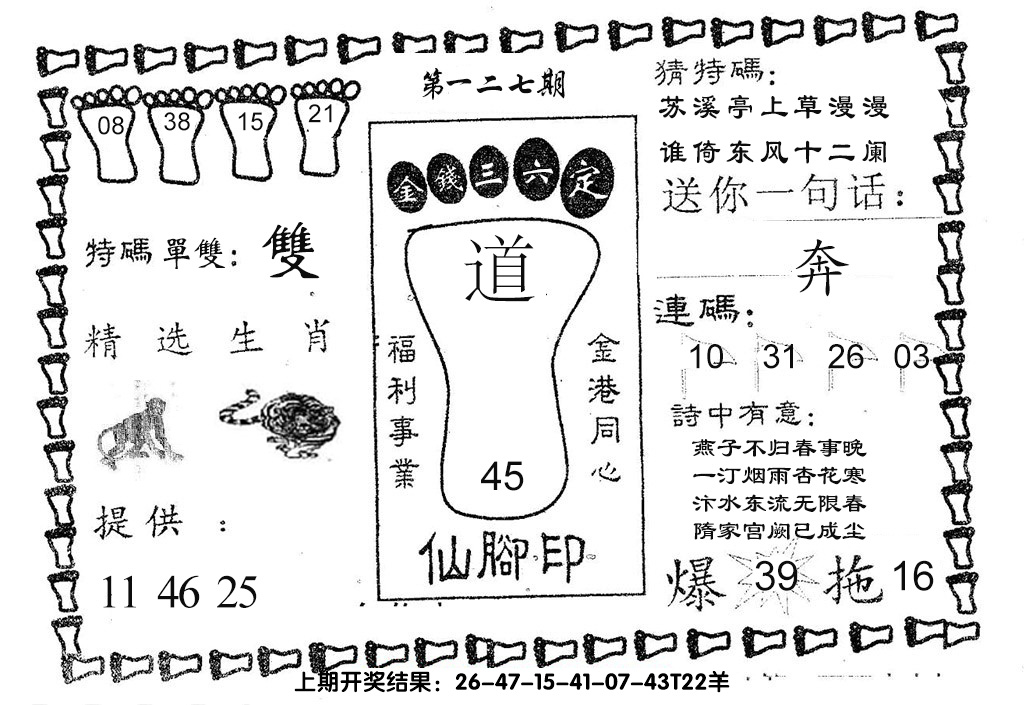 第一二七期
08 38 15 21
特碼單雙：雙
精选生肖
提供：
11 46 25
金錢三六定
道
福利事業
金港同心
45
仙腳印
猜特碼：
苏溪亭上草漫漫
谁倚东风十二阑
送你一句话：
奔
連碼：
10 31 26 03
詩中有意：
燕子不归春事晚
一汀烟雨杏花寒
汴水东流无限春
隋家宫阙已成尘
爆 39 拖 16
上期开奖结果：26-47-15-41-07-43T22羊